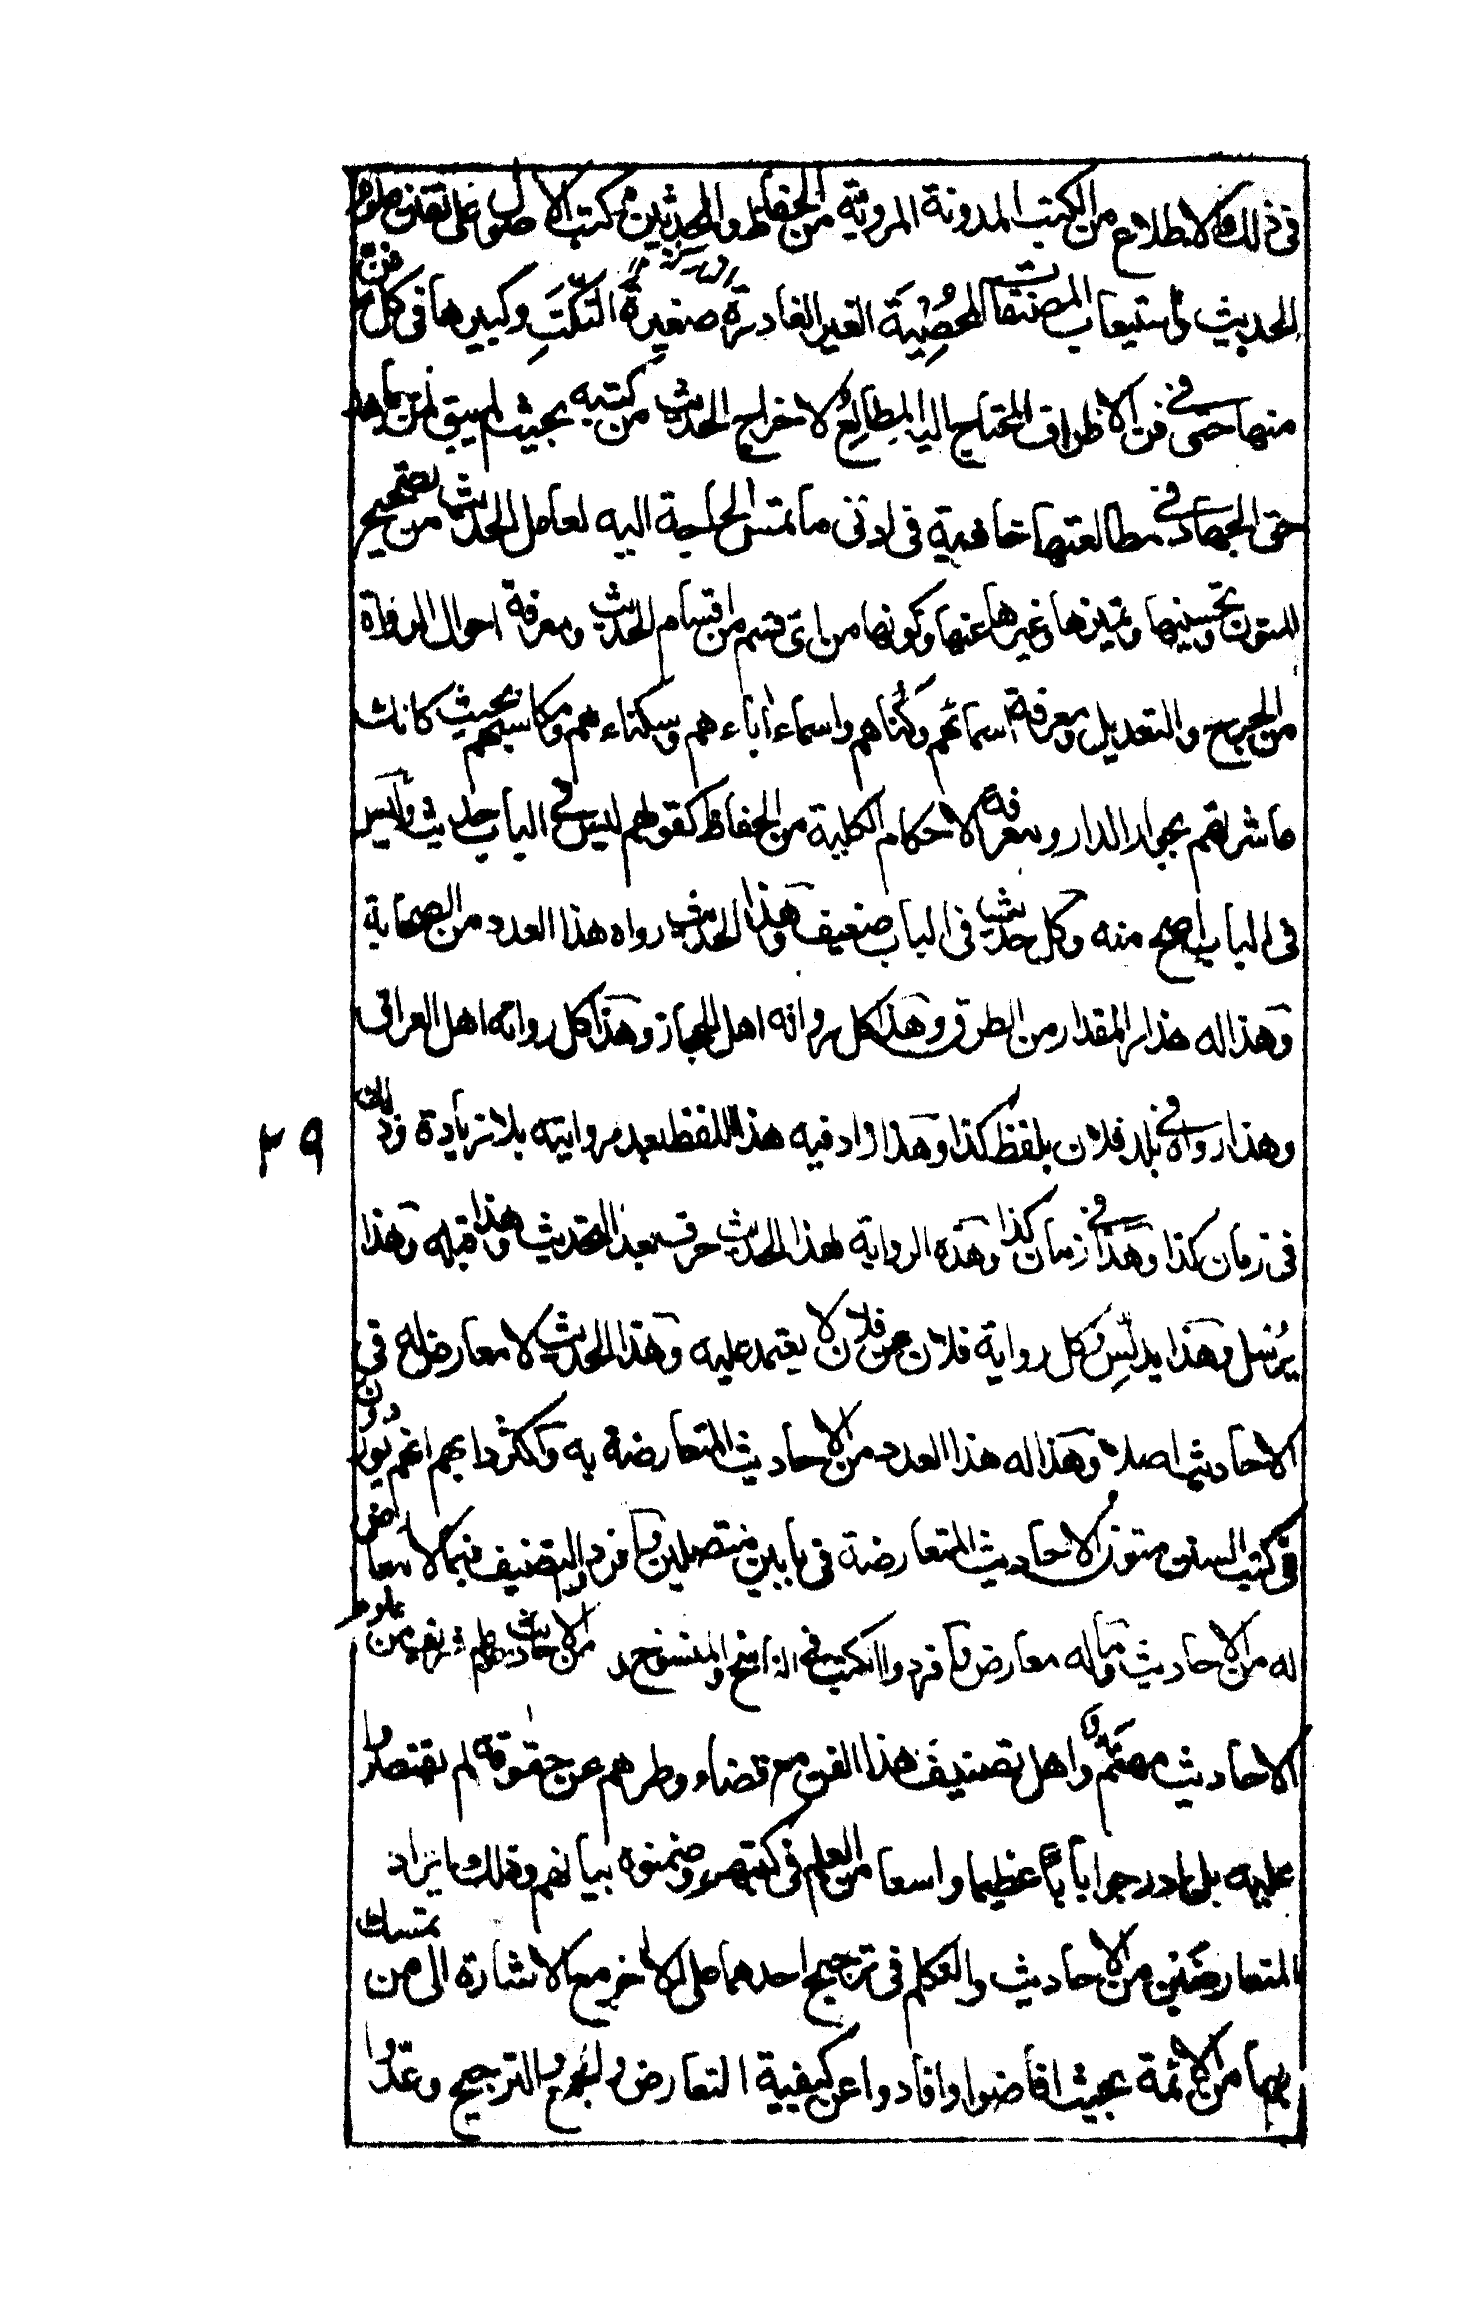 فى ذلك والاطلاع من الكتب المدونة المروية من الحفاظ والمحدثين من كتب الاصول على تفنن علوم
الحديث واستيعاب المصنفات المحصية الغير الغادرة صغيرة النكت وكبيرها فى كل فن
منها حتى فى فن الاطراف المحتاج اليها المطالع لاخراج الحديث من كتبه بحيث لم يبق لمن
حتى الجهاد فى مطالعتها خافية فى ادنى ما تمس الحاجة اليه لعامل الحديث من تصحيح
المتون وتحسينها وتميزها وغيرها عنها وكونها من اى قسم من اقسام الحديث ومعرفة احوال الرواة
من الجرح والتعديل ومعرفة اسمائهم وكناهم واسماء اباء هم وسكناء هم ومكاسبهم بحيث كانت
ما شرافتهم بجوار الدار ومعرفة الاحكام الكلية من الحفاظ كقولهم ليس فى الباب حديث وليس
فى الباب اصح منه وكل حديث فى الباب ضعيف وهذا الحديث رواه هذا العدد من الصحابة
وهذا له هذا المقدار من الطرق وهذا كل رواته اهل الحجاز وهذا كل رواته اهل العراق
وهذا رواه فى بلد فلان بلفظ كذا وهذا زاد فيه هذا اللفظ بعد روايته بلا زيادة وذلك
فى زمان كذا وهذا فى زمان كذا وهذه الرواية لهذا الحديث حرف بعد التحديث وهذا قبله وهذا
يرسل وهذا يدلس وكل رواية فلان عن فلان لا يعتمد عليه وهذا الحديث لا معارض له فى
الاحاديث اصلا وهذا له هذا العدد من الاحاديث المتعارضة به وككثر دابهم انهم يوردون
فى كتب السنن متون الاحاديث المتعارضة فى بابين متصلين وافرد والتصنيف فيما لا معارض
له من الاحاديث وما له معارض وافردوا الكتب فى الناسخ والمنسوخ من الاحاديث من علوم
الاحاديث مهتم واهل تصنيف هذا الفن مع قضاء وطرهم عن حقوقه لم يقتصروا
عليه بل ادرجوا بابا عظيما واسعا من العلم فى كتبهم وضمنوه بيانهم وذلك بايراد
المتعارضين من الاحاديث والتكلم فى ترجيح احدهما على الاخر مع الاشارة الى من تمسك
بهما من الائمة بحيث افاضوا وافادوا عن كيفية التعارض والجمع والترجيح وعدوا
٢٩